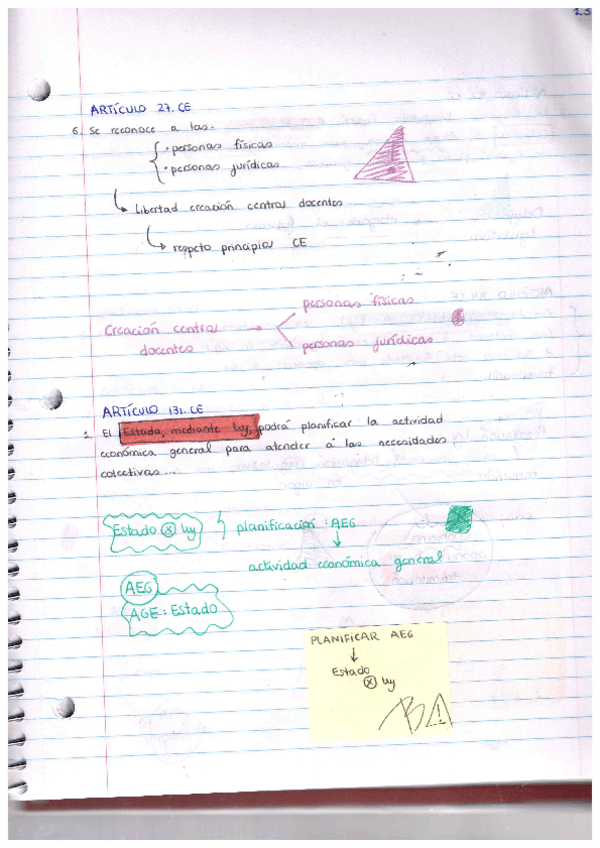 23
ARTÍCULO 27. CE
6. Se reconoce a las:
· personas físicas
· personas jurídicas
libertad creación centros docentes
respeto principios CE
personas físicas
Creación centros
docentes
personas jurídicas
ARTÍCULO 131. CE
1. El Estado, mediante ley, podrá planificar la actividad
económica general para atender a las necesidades
colectivas...
Estado ⓧ ley planificación: AEG
actividad económica general
AEG
AGE: Estado
PLANIFICAR AEG
Estado
ⓧ ley